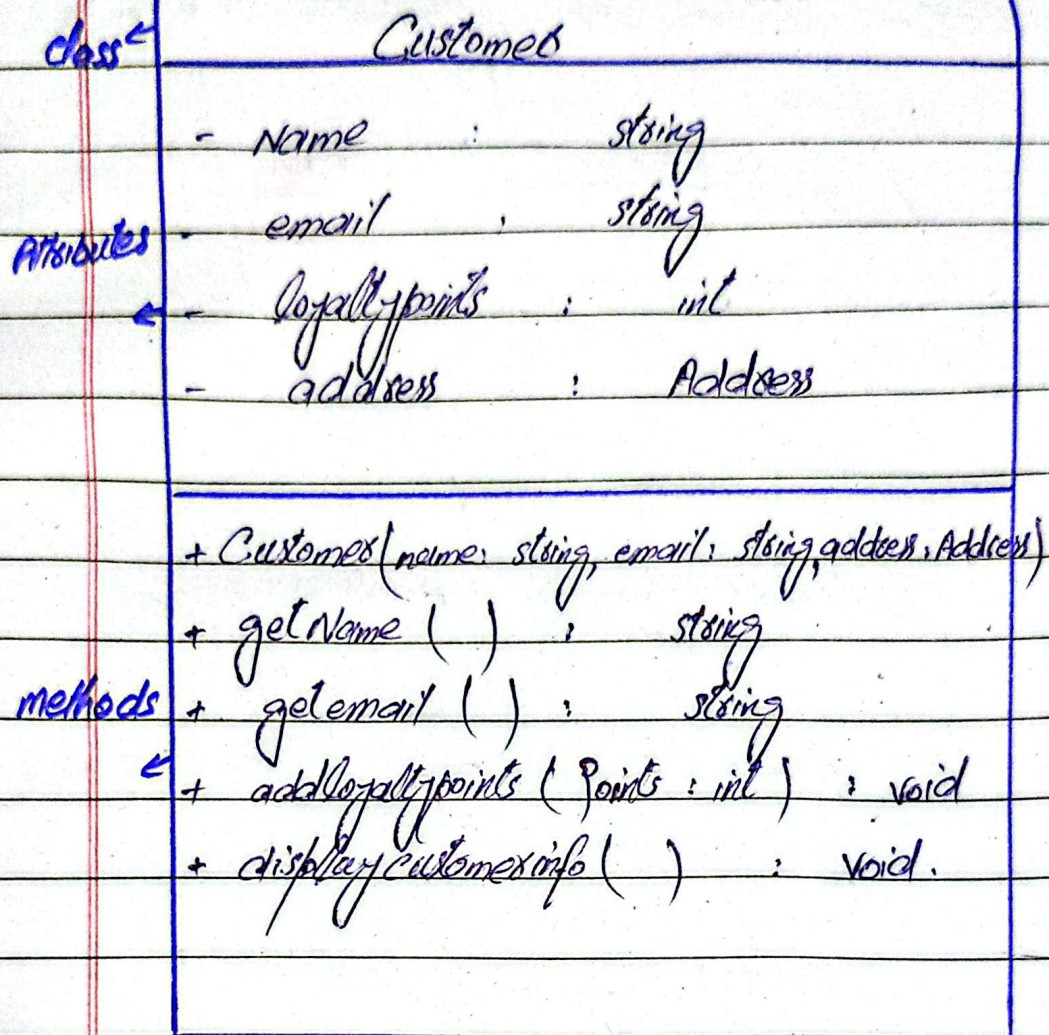 class ← Customer
- Name : string
Attributes - email : string
← - loyaltypoints : int
- address : Address
+ Customer(name: string, email: string, address: Address)
+ getName ( ) : string
methods + getemail ( ) : string
← + addloyaltypoints ( Points : int ) : void
+ displaycustomerinfo ( ) : void.